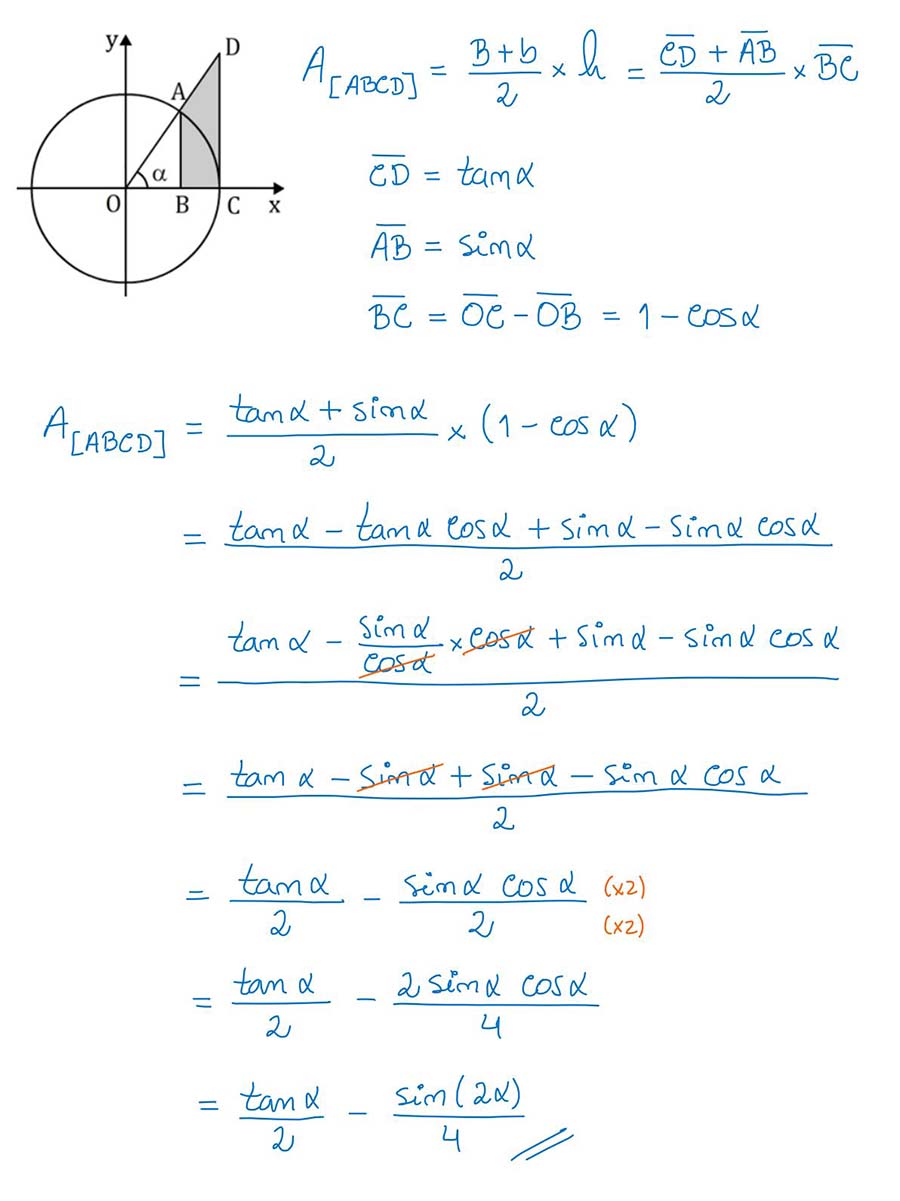 y
D
A
α
O
B
C
x
A[ABCD] = (B + b)/2 × h = (C̅D̅ + A̅B̅)/2 × B̅C̅
C̅D̅ = tanα
A̅B̅ = sinα
B̅C̅ = O̅C̅ − O̅B̅ = 1 − cosα
A[ABCD] = (tanα + sinα)/2 × (1 − cosα)
= (tanα − tanα cosα + sinα − sinα cosα)/2
= (tanα − sinα/cosα × cosα + sinα − sinα cosα)/2
= (tanα − sinα + sinα − sinα cosα)/2
= tanα/2 − (sinα cosα)/2 (×2) (×2)
= tanα/2 − (2 sinα cosα)/4
= tanα/2 − sin(2α)/4